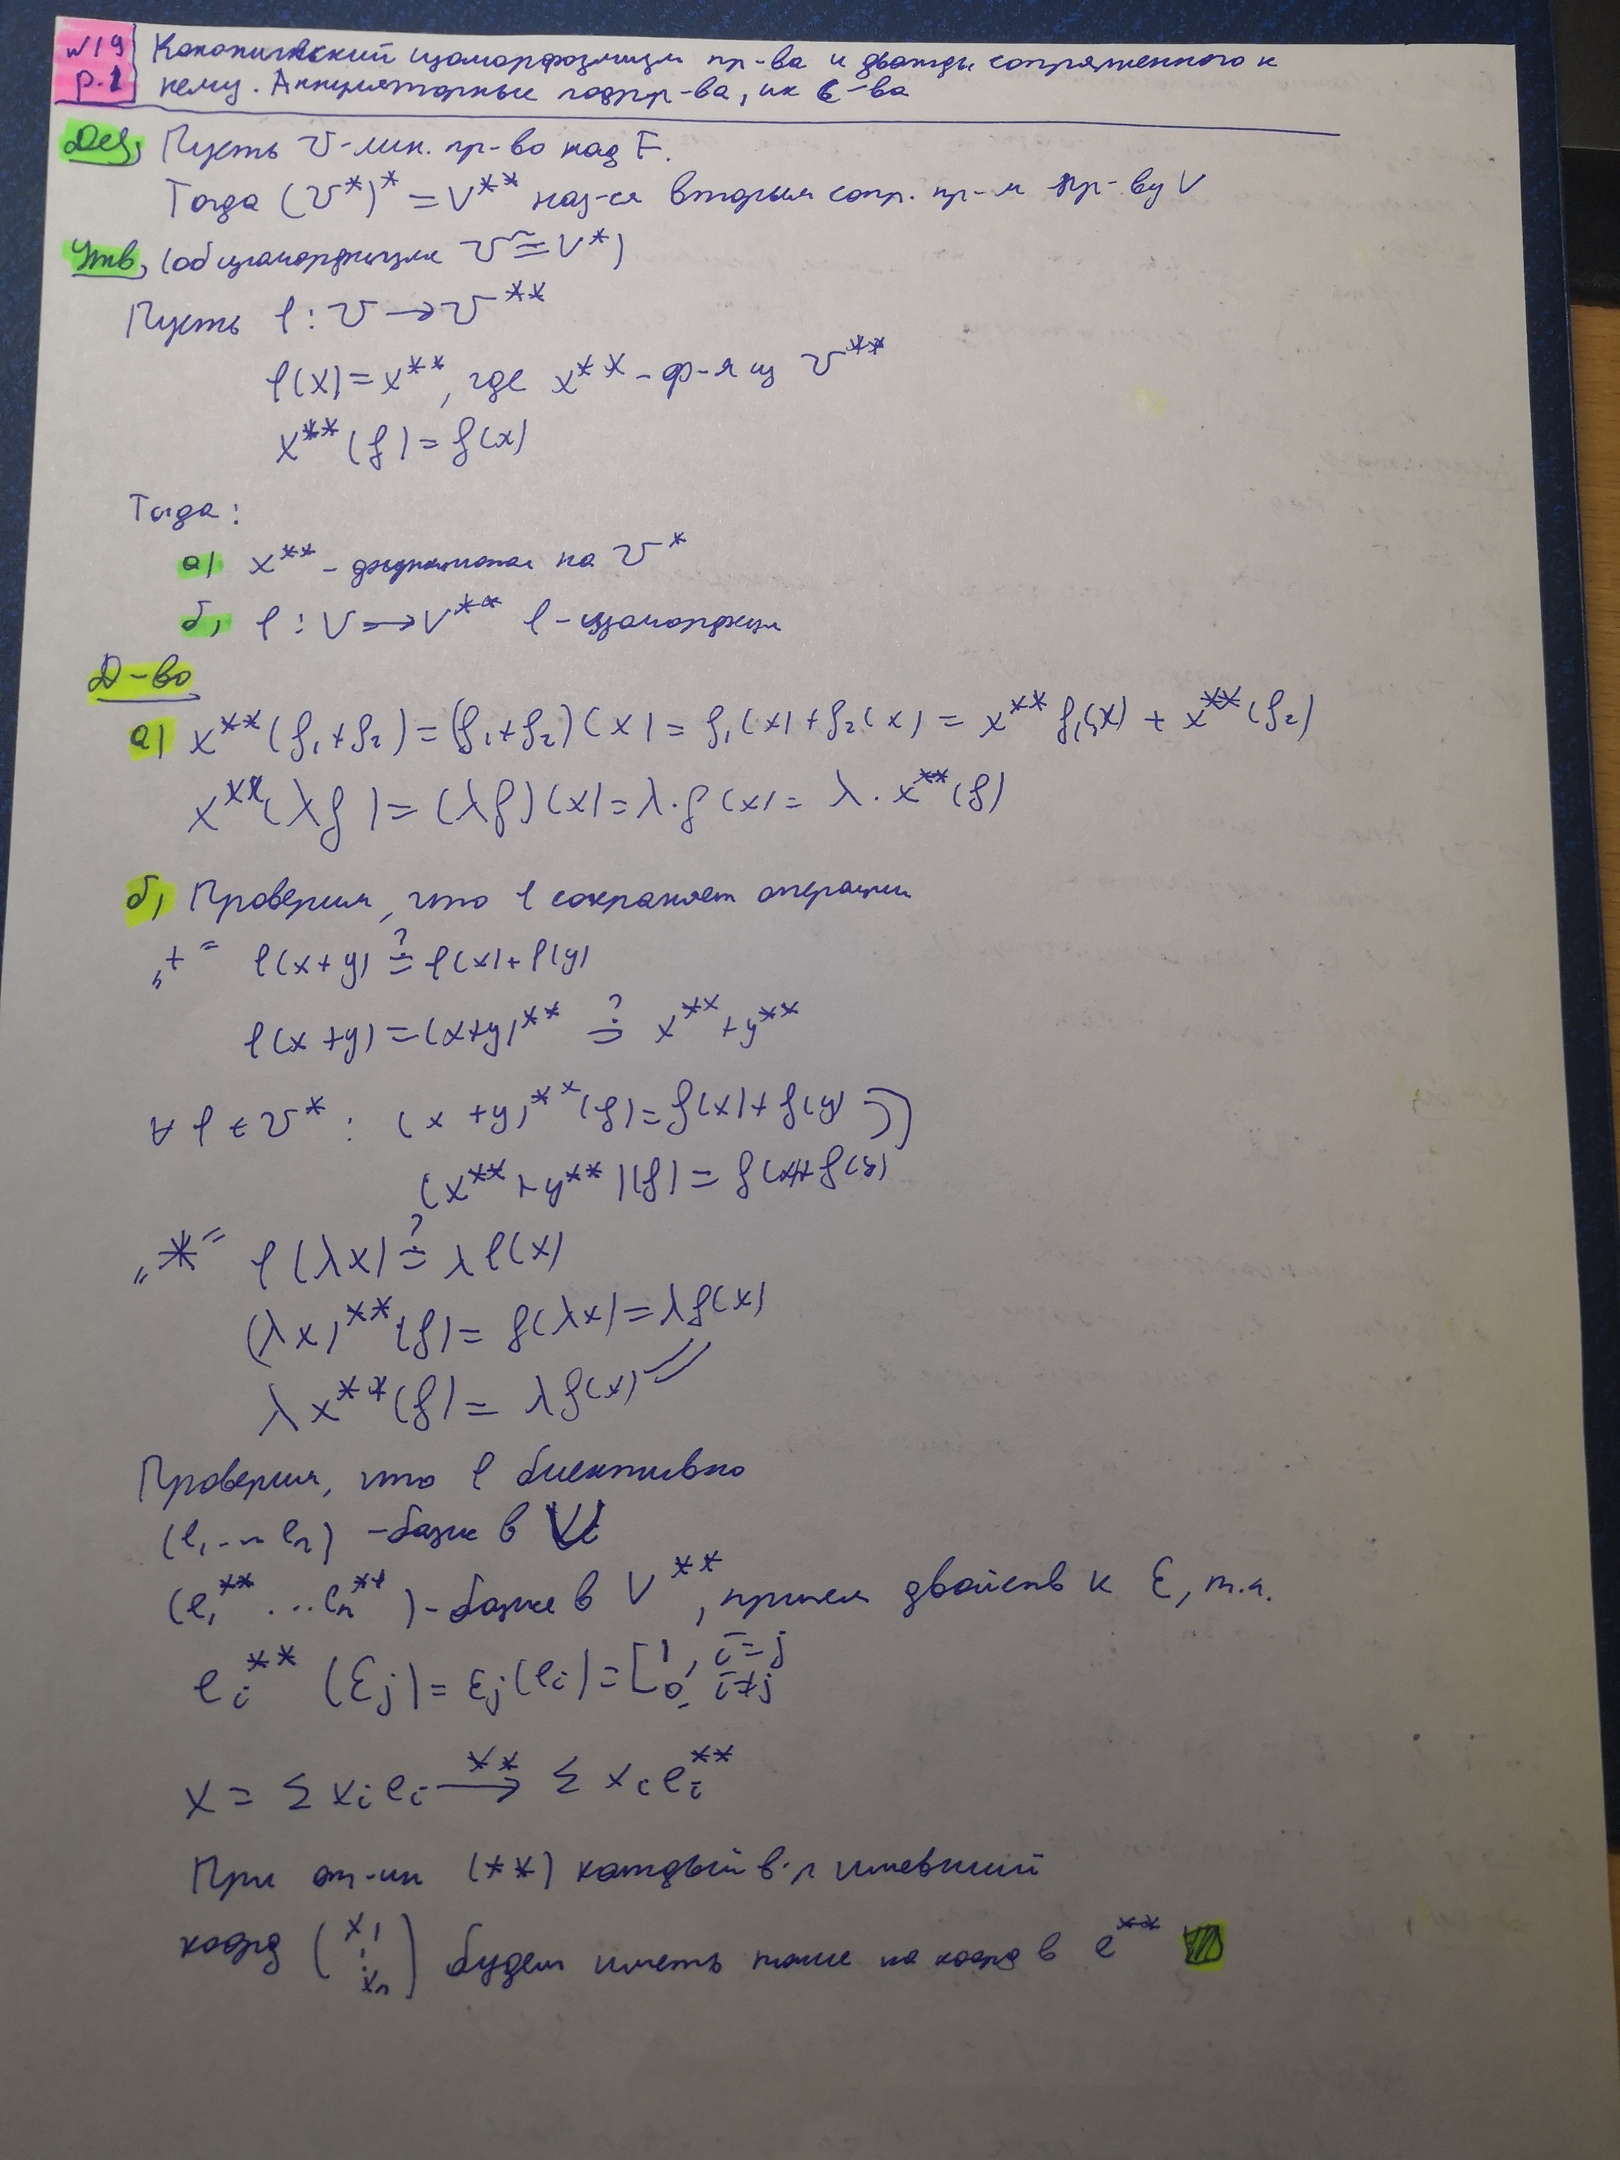 №19 Канонический изоморфизм пр-ва и дважды сопряженного к
р.1 нему. Аннуляторные подпр-ва, их с-ва
Def, Пусть V-лин. пр-во над F.
Тогда (V*)* = V** наз-ся вторым сопр. пр-м пр-ву V
Утв, (об изоморфизме V ≅ V*)
Пусть φ : V → V**
φ(x) = x**, где x** - ф-я из V**
x**(f) = f(x)
Тогда:
а) x** - функционал на V*
б) φ : V → V** φ - изоморфизм
Д-во
а) x**(f₁+f₂) = (f₁+f₂)(x) = f₁(x) + f₂(x) = x** f₁(x) + x**(f₂)
x**(λf) = (λf)(x) = λ·f(x) = λ·x**(f)
б) Проверим, что φ сохраняет операции
„+" φ(x+y) ≟ φ(x) + φ(y)
φ(x+y) = (x+y)** ≟ x** + y**
∀ f ∈ V* : (x+y)**(f) = f(x) + f(y)
(x** + y**)(f) = f(x) + f(y)
„*" φ(λx) ≟ λφ(x)
(λx)**(f) = f(λx) = λf(x)
λx**(f) = λf(x)
Проверим, что φ биективно
(e₁ ... eₙ) - базис в V
(e₁** ... eₙ**) - базис в V**, причем двойств к Ɛ, т.к.
eᵢ**(Ɛⱼ) = Ɛⱼ(eᵢ) = [1, i=j
0, i≠j
x = Σ xᵢeᵢ →** Σ xᵢeᵢ**
При от-ии (**) каждый в-р имевший
коорд (x₁ ⋮ xₙ) будет иметь такие же коорд в e**